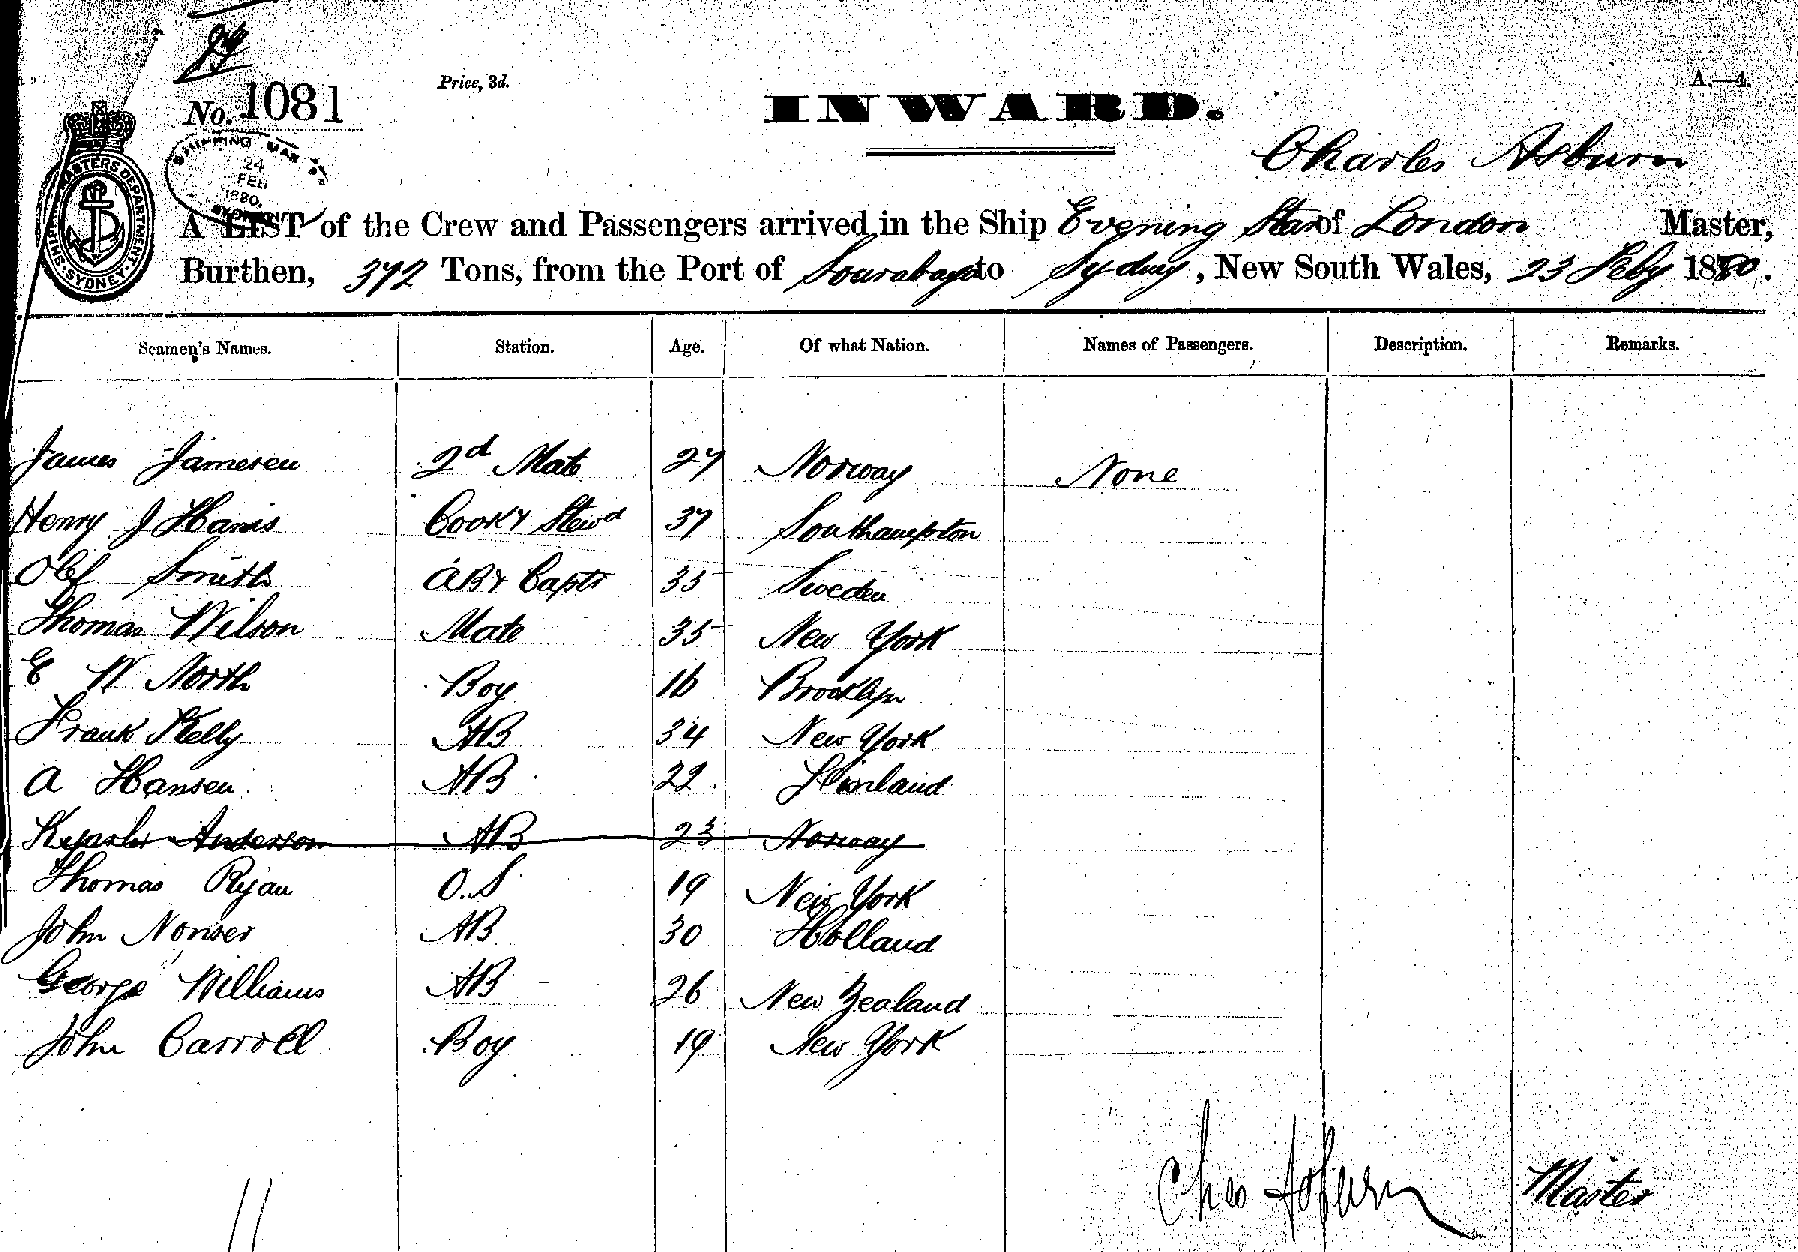 29
No. 1081
Price, 3d.
INWARD.
A.—4.
SHIPPING MASTERS DEPARTMENT
SYDNEY
SHIPPING MAS
24
FEB
1880
Charles Asburn
A LIST of the Crew and Passengers arrived in the Ship Evening Star of London Master,
Burthen, 372 Tons, from the Port of Sourabaya to Sydney, New South Wales, 23 Feby 1880.
Seamen's Names. Station. Age. Of what Nation. Names of Passengers. Description. Remarks.
James Jamesen 2d Mate 27 Norway None
Henry J Harris Cook & Stewd 37 Southampton
Olef Smith AB & Captr 35 Sweden
Thomas Wilson Mate 35 New York
E W North Boy 16 Brooklyn
Frank Kelly AB 34 New York
A Hansen AB 22 Finland
Anderson AB 23 Norway
Thomas Ryan O.S 19 New York
John AB 30 Holland
George Williams AB 26 New Zealand
John Carroll Boy 19 New York
11
Chas Asburn Master